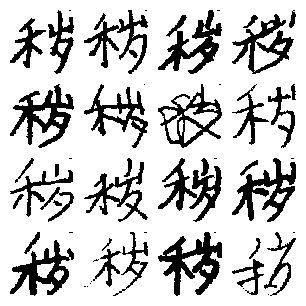 秽秽秽秽
秽秽秽
秽秽秽秽
秽秽秽